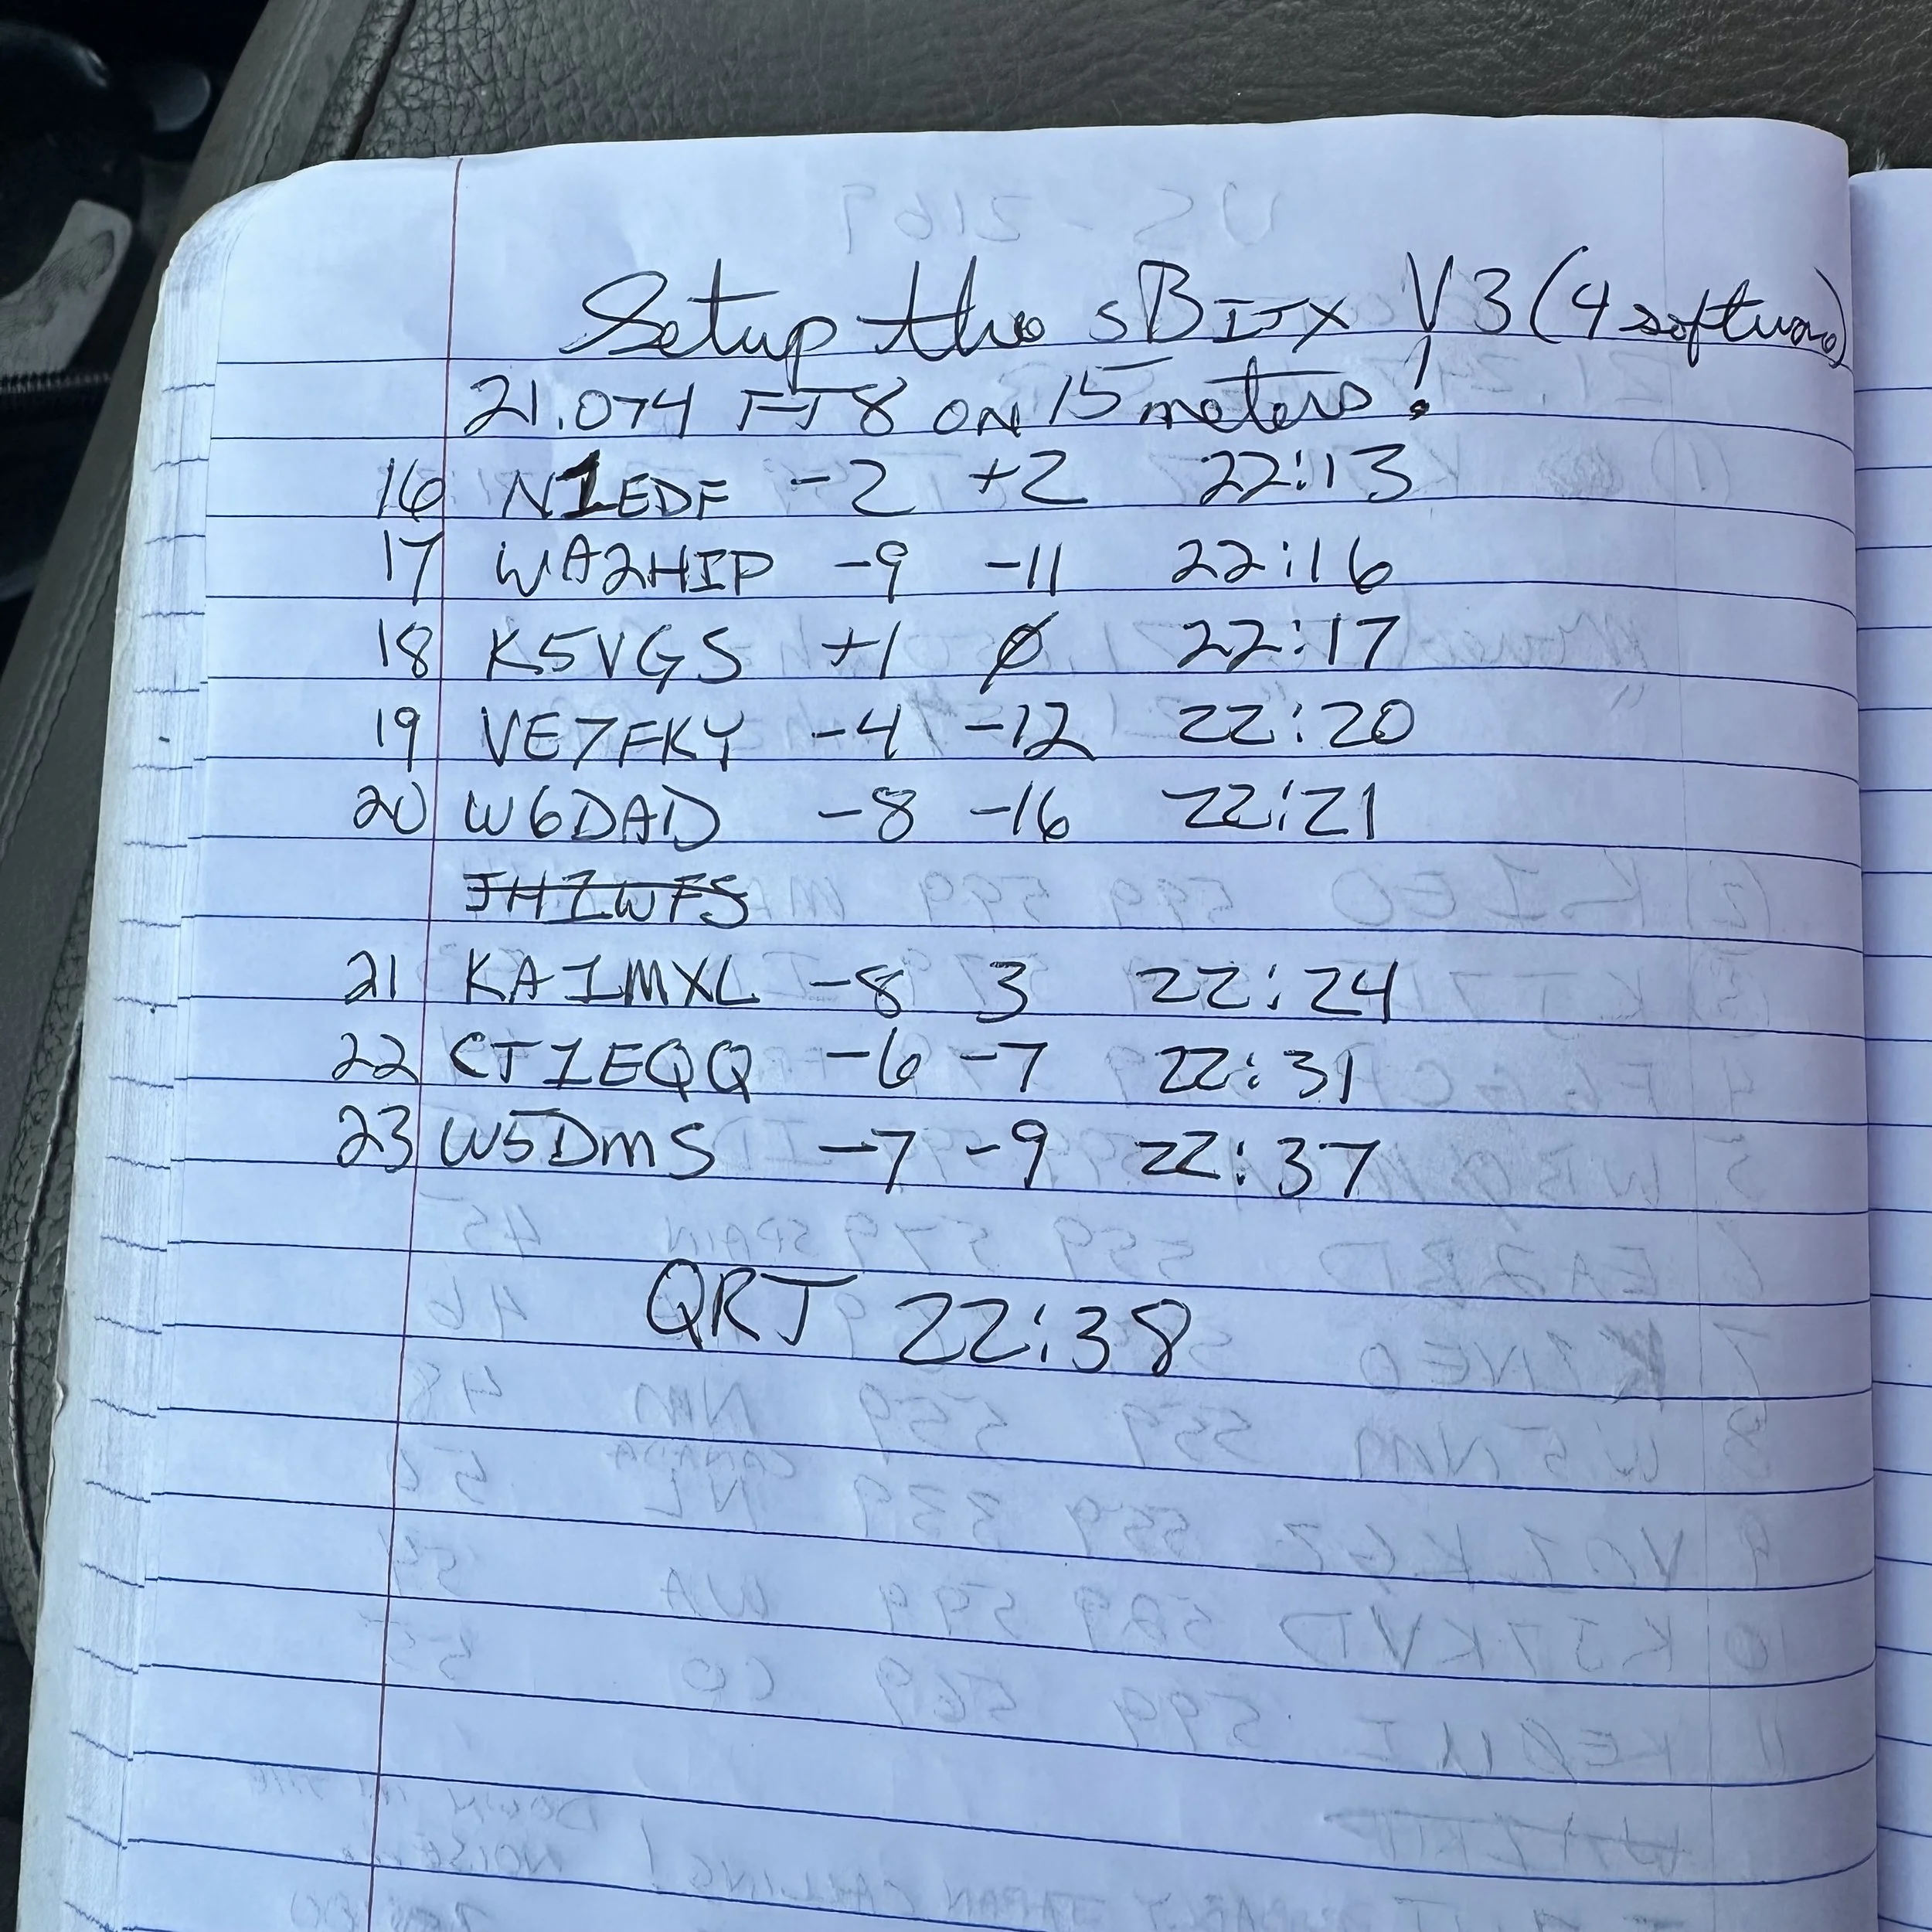 Setup the sBITX V3 (4 software)
21.074 FT8 ON 15 meters!
16 N1EDF -2 +2 22:13
17 WA2HIP -9 -11 22:16
18 K5VGS +1 Ø 22:17
19 VE7FKY -4 -12 22:20
20 W6DAD -8 -16 22:21
JH1WFS
21 KA1MXL -8 3 22:24
22 CT1EQQ -6 -7 22:31
23 W5DMS -7 -9 22:37
QRT 22:38